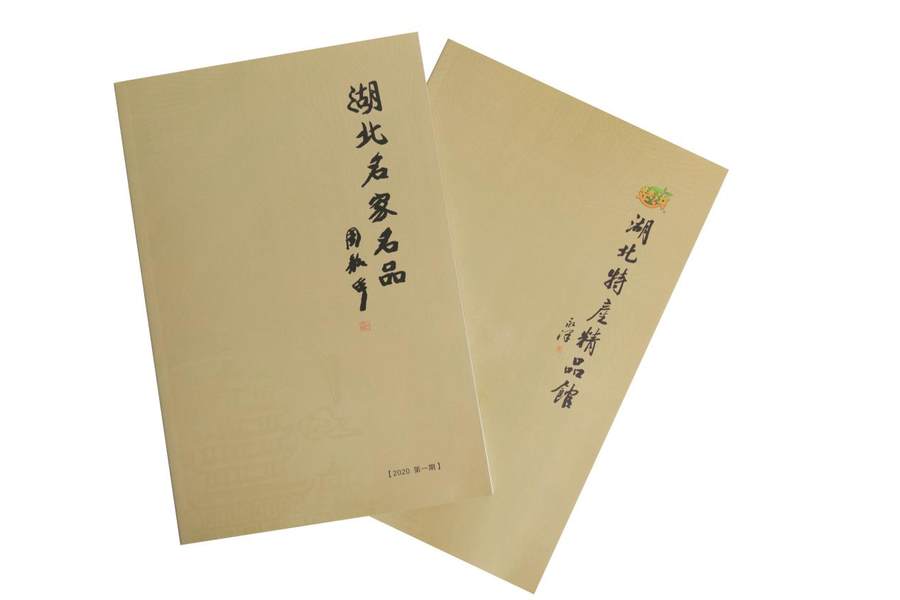 湖北名家名品
【2020 第一期】
湖北特產精品館